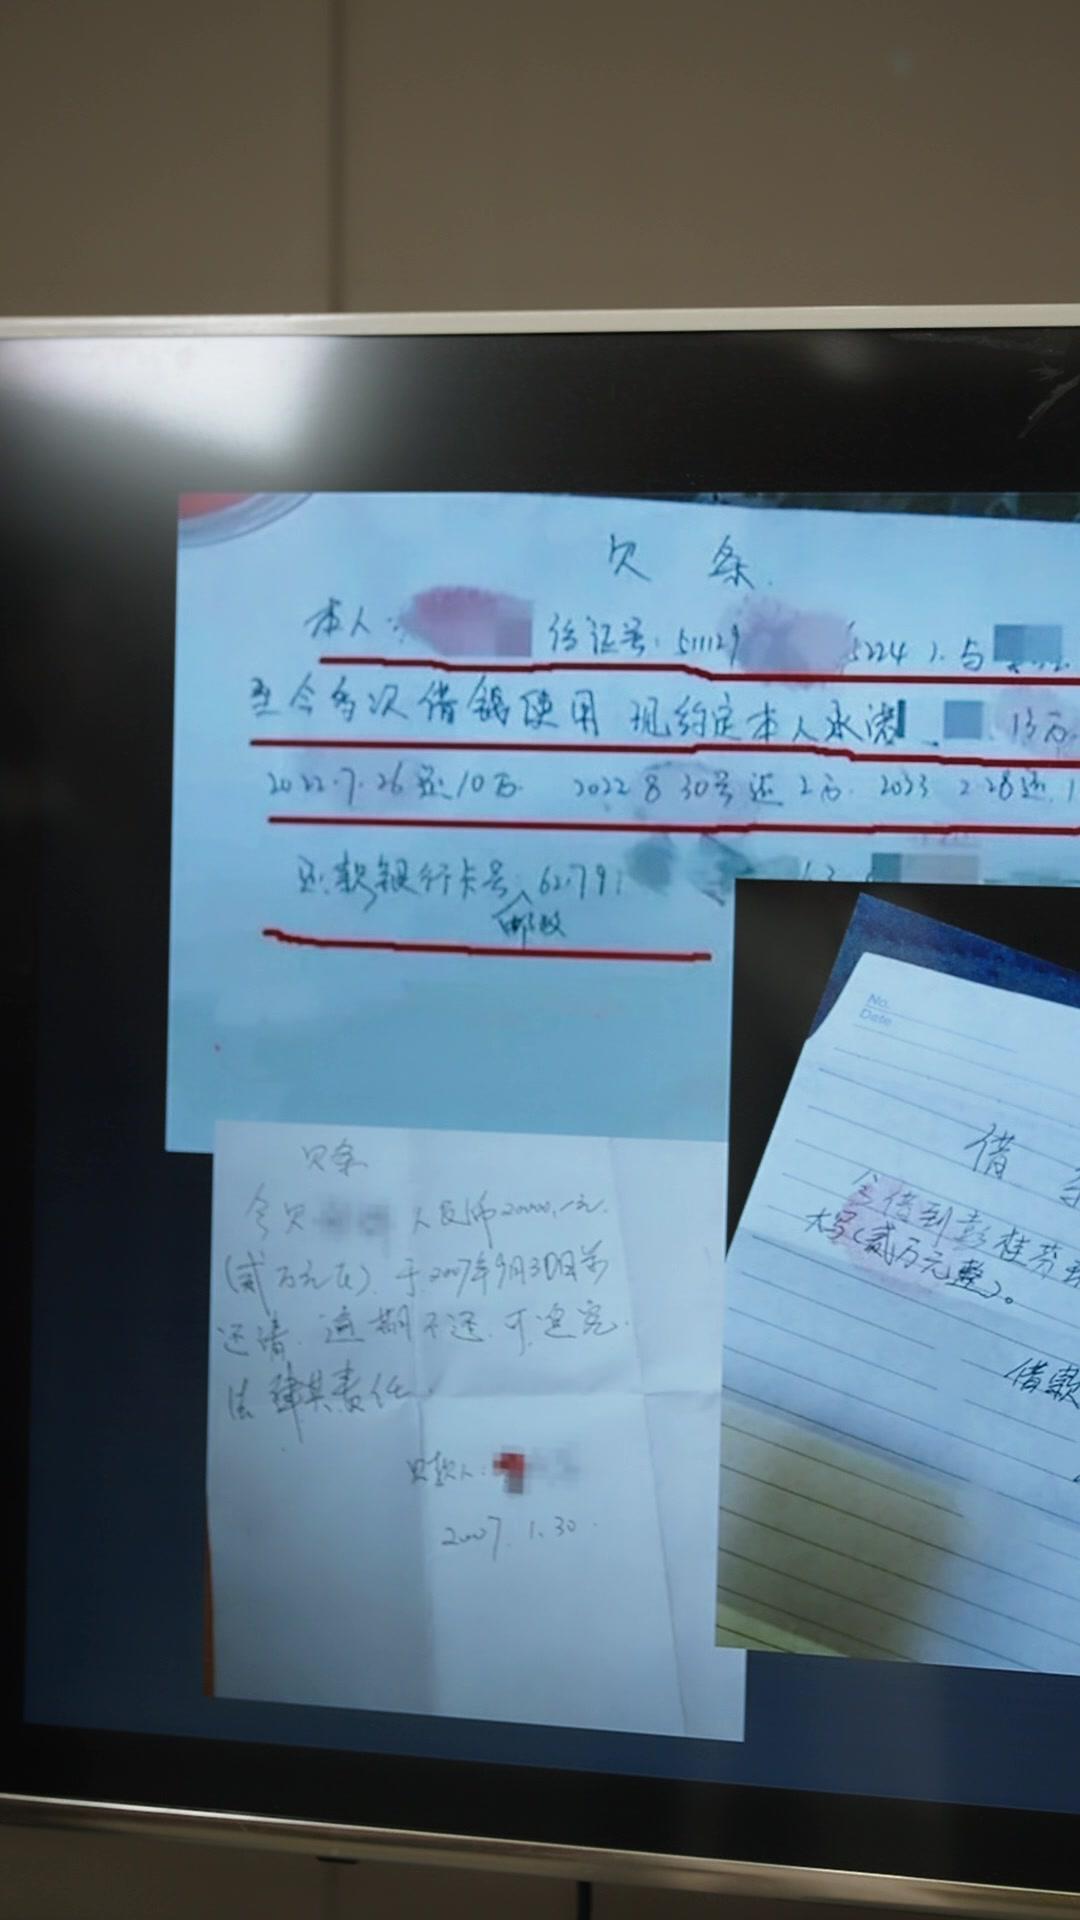 欠 条
本人: 份证号: 511129 5224). 与
至今多次借钱使用 现约定本人承诺 13万
2022.7.26还10万 2022 8 30号还2万. 2023 2 28还1
还款银行卡号: 62.791
邮政
欠条
今欠 人民币20000.-元.
(贰万元正). 于2007年9月30日前
还清. 逾期不还. 可追究
法律其责任.
欠款人:
2007. 1. 30.
No.
Date
借
今借到彭桂芬
大写(贰万元整)。
借款